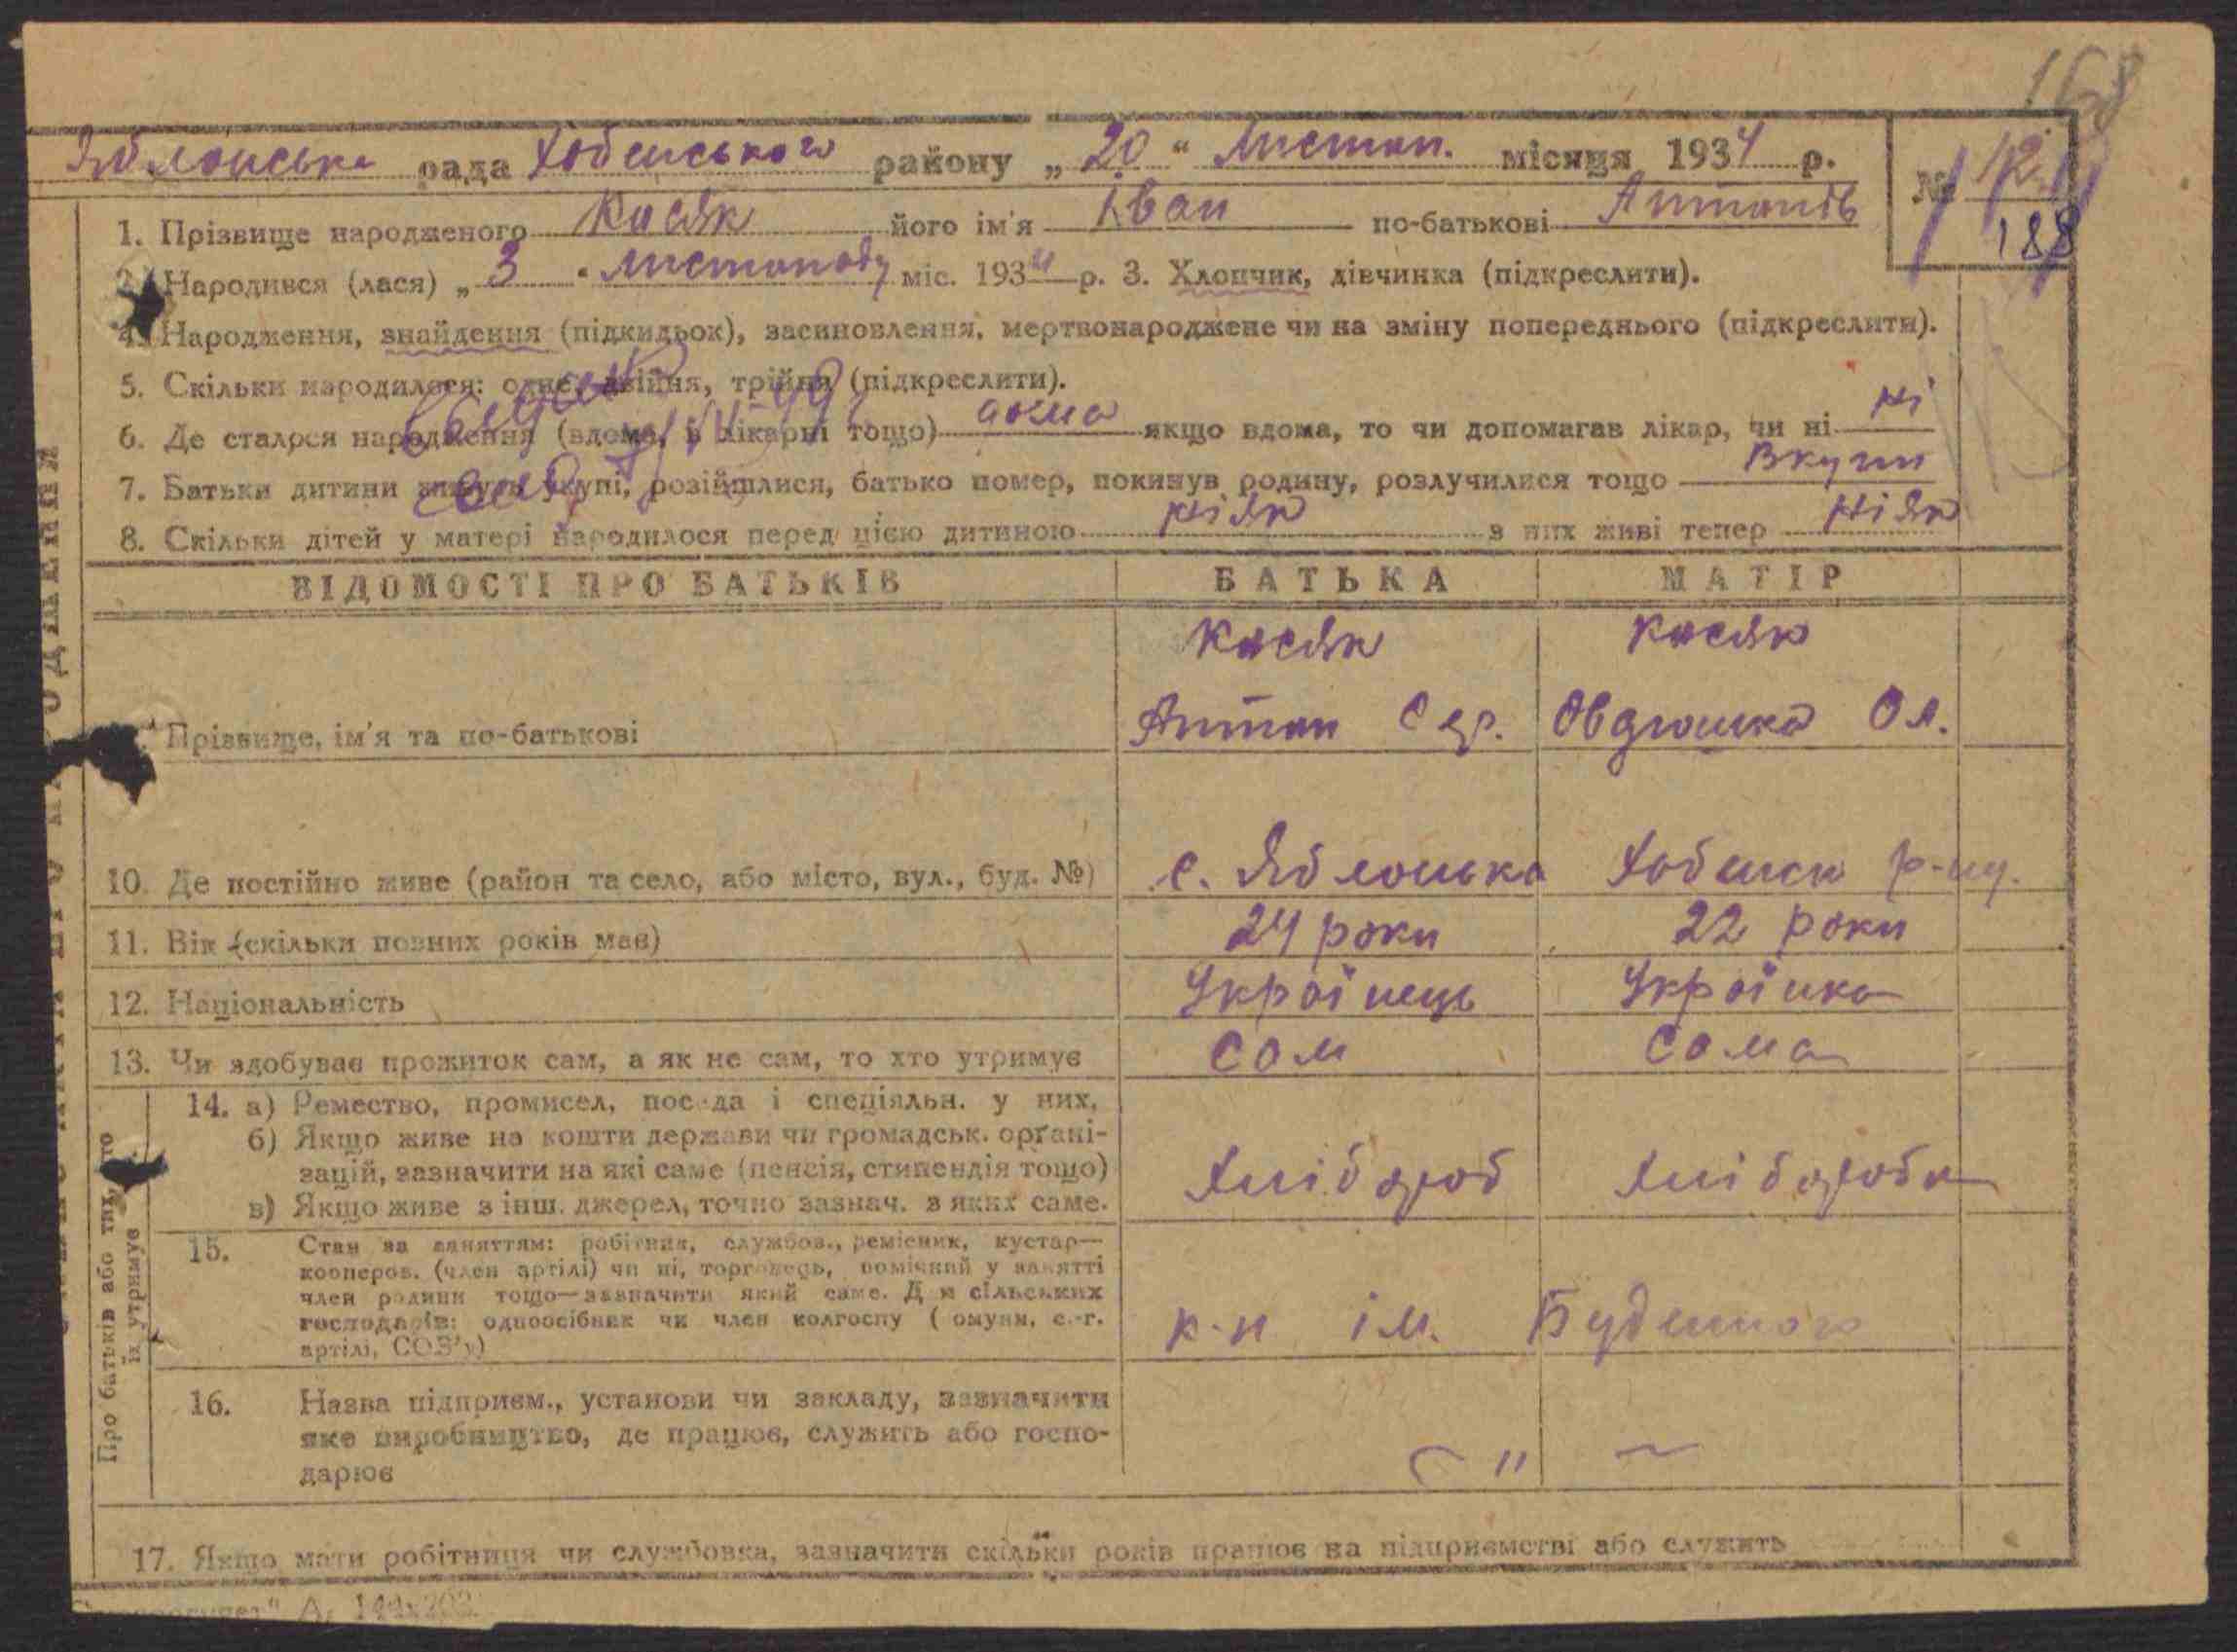 168
Яблонська рада Хабенського району „20“ Листоп. місяця 1934 р.
№ 12
188
1. Прізвище народженого Касяк його ім'я Іван по-батькові Антонів
2. Народився (лася) „3“ Листопаду міс. 1934 р. 3. Хлопчик, дівчинка (підкреслити).
4. Народження, знайдення (підкидьок), засиновлення, мертвонароджене чи на зміну попереднього (підкреслити).
5. Скільки народилося: одне, двійня, трійня (підкреслити).
6. Де сталося народження (вдома, в лікарні тощо) дома якщо вдома, то чи допомагав лікар, чи ні ні
7. Батьки дитини живуть вкупі, розійшлися, батько помер, покинув родину, розлучилися тощо Вкупи
8. Скільки дітей у матері народилося перед цією дитиною ніяк з них живі тепер ніяк
ВІДОМОСТІ ПРО БАТЬКІВ БАТЬКА МАТІР
Касяк Касяк
Прізвище, ім'я та по-батькові Антон Овдюшка Ол.
10. Де постійно живе (район та село, або місто, вул., буд. №) с. Яблонька Хабенск р-ну.
11. Вік (скільки повних років має) 24 роки 22 роки
12. Національність Українець Українка
13. Чи здобуває прожиток сам, а як не сам, то хто утримує Сам Сама
Про батьків або тих, хто
їх утримує
14. а) Ремество, промисел, посада і спеціяльн. у них,
б) Якщо живе на кошти держави чи громадськ. орґані-
зацій, зазначити на які саме (пенсія, стипендія тощо)
в) Якщо живе з інш. джерел, точно зазнач. з яких саме.
Хлібороб Хлібороба
15. Стан за заняттям: робітник, службов., ремісник, кустар—
кооперов. (член артілі) чи ні, торговець, помічний у занятті
член родини тощо—зазначити який саме. Для сільських
господарів: одноосібник чи член колгоспу (комуни, с.-г.
артілі, СОЗ'у)
к-п ім. Буденного
16. Назва підприєм., установи чи закладу, зазначити
яке виробництво, де працює, служить або госпо-
дарює
— " —
17. Якщо мати робітниця чи службовка, зазначити скільки років працює на підприємстві або служить